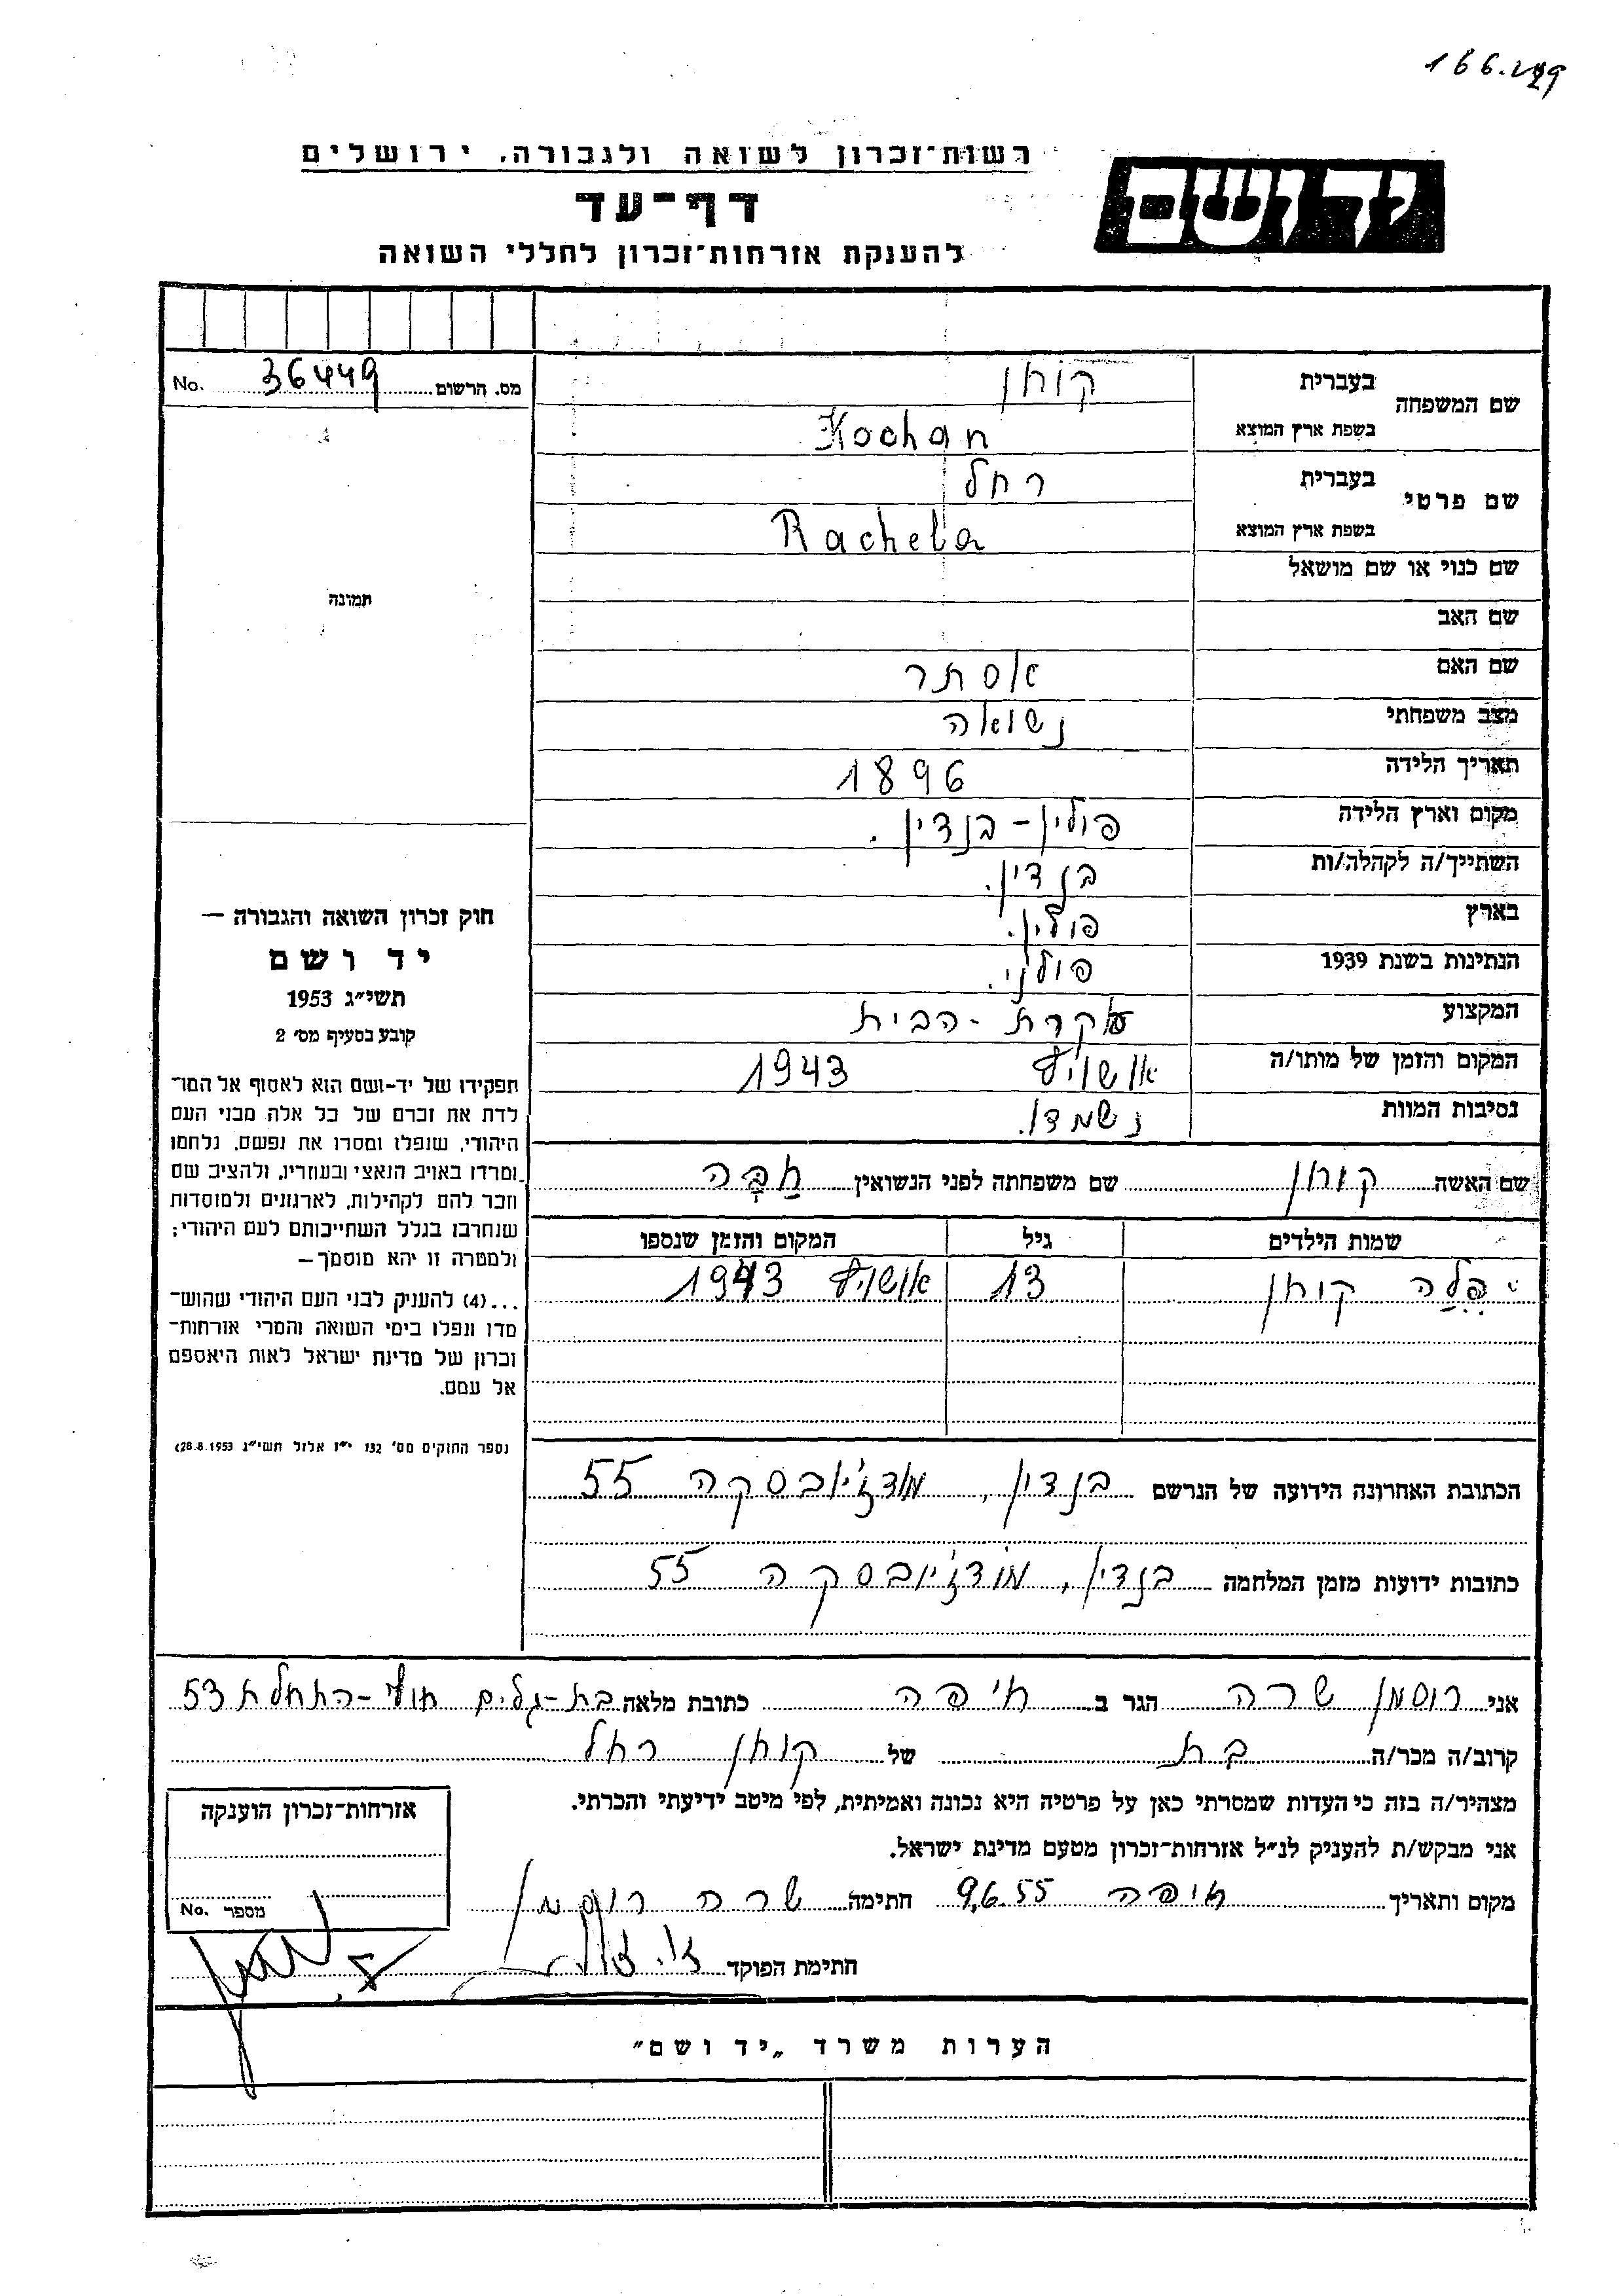 166.429
רשות־זכרון לשואה ולגבורה, ירושלים
יד ושם
דף־עד
להענקת אזרחות־זכרון לחללי השואה
מס. הרשום 36449 No.
שם המשפחה
בעברית קוחן
בשפת ארץ המוצא Kochan
שם פרטי
בעברית רחל
בשפת ארץ המוצא Rachela
שם כנוי או שם מושאל
שם האב
שם האם אסתר
מצב משפחתי נשואה
תאריך הלידה 1896
מקום וארץ הלידה פולין - בנדין.
השתייך/ה לקהלה/ות בנדין.
בארץ פולין.
הנתינות בשנת 1939 פולני.
המקצוע עקרת - הבית
המקום והזמן של מותו/ה אושויץ 1943
נסיבות המוות נשמדו.
שם האשה קוחן שם משפחתה לפני הנשואין
שמות הילדים גיל המקום והזמן שנספו
קוחן 13 אושויץ 1943
הכתובת האחרונה הידועה של הנרשם בנדין, מודז'יובסקה 55
כתובות ידועות מזמן המלחמה בנדין, מודז'יובסקה 55
תמונה
חוק זכרון השואה והגבורה —
יד ושם
תשי״ג 1953
קובע בסעיף מס׳ 2
תפקידו של יד-ושם הוא לאסוף אל המו־
לדת את זכרם של כל אלה מבני העם
היהודי, שנפלו ומסרו את נפשם, נלחמו
ומרדו באויב הנאצי ובעוזריו, ולהציב שם
וזכר להם לקהילות, לארגונים ולמוסדות
שנחרבו בגלל השתייכותם לעם היהודי;
ולמטרה זו יהא מוסמך—
...(4) להעניק לבני העם היהודי שהוש־
מדו ונפלו בימי השואה והמרי אזרחות־
זכרון של מדינת ישראל לאות היאספם
אל עמם.
(ספר החוקים מס׳ 132 י״ז אלול תשי״ג 28.8.1953)
אני רוסמן שרה הגר ב חיפה כתובת מלאה בת-גלים חוף-התחלת 53
קרוב/ה מכר/ה בת של קוחן רחל
מצהיר/ה בזה כי העדות שמסרתי כאן על פרטיה היא נכונה ואמיתית, לפי מיטב ידיעתי והכרתי.
אני מבקש/ת להעניק לנ״ל אזרחות־זכרון מטעם מדינת ישראל.
מקום ותאריך חיפה 9.6.55 חתימה שרה רוסמן
חתימת הפוקד
אזרחות־זכרון הוענקה
מספר No.
הערות משרד „יד ושם״